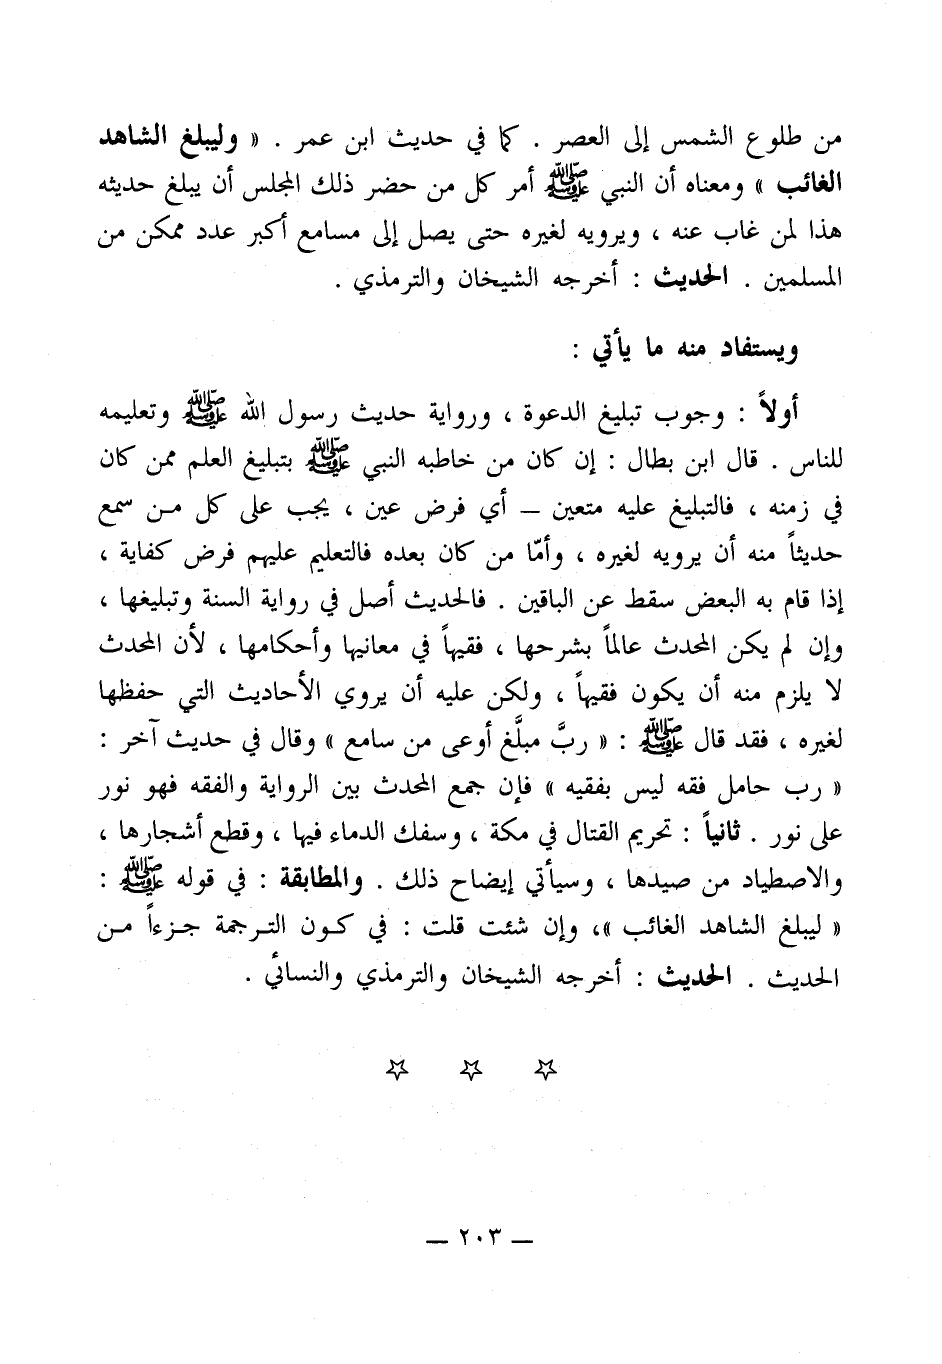 من طلوع الشمس إلى العصر . كما في حديث ابن عمر . « وليبلغ الشاهد
الغائب » ومعناه أن النبي ﷺ أمر كل من حضر ذلك المجلس أن يبلغ حديثه
هذا لمن غاب عنه ، ويرويه لغيره حتى يصل إلى مسامع أكبر عدد ممكن من
المسلمين . الحديث : أخرجه الشيخان والترمذي .
ويستفاد منه ما يأتي :
أولاً : وجوب تبليغ الدعوة ، ورواية حديث رسول الله ﷺ وتعليمه
للناس . قال ابن بطال : إن كان من خاطبه النبي ﷺ بتبليغ العلم ممن كان
في زمنه ، فالتبليغ عليه متعين — أي فرض عين ، يجب على كل مـن سمع
حديثاً منه أن يرويه لغيره ، وأمّا من كان بعده فالتعليم عليهم فرض كفاية ،
إذا قام به البعض سقط عن الباقين . فالحديث أصل في رواية السنة وتبليغها ،
وإن لم يكن المحدث عالماً بشرحها ، فقيهاً في معانيها وأحكامها ، لأن المحدث
لا يلزم منه أن يكون فقيهاً ، ولكن عليه أن يروي الأحاديث التي حفظها
لغيره ، فقد قال ﷺ : « ربَّ مبلَّغ أوعى من سامع » وقال في حديث آخر :
« رب حامل فقه ليس بفقيه » فإن جمع المحدث بين الرواية والفقه فهو نور
على نور . ثانياً : تحريم القتال في مكة ، وسفك الدماء فيها ، وقطع أشجارها ،
والاصطياد من صيدها ، وسيأتي إيضاح ذلك . والمطابقة : في قوله ﷺ :
« ليبلغ الشاهد الغائب »، وإن شئت قلت : في كـون التـرجمة جـزءاً مـن
الحديث . الحديث : أخرجه الشيخان والترمذي والنسائي .
☆ ☆ ☆
— ٢٠٣ —